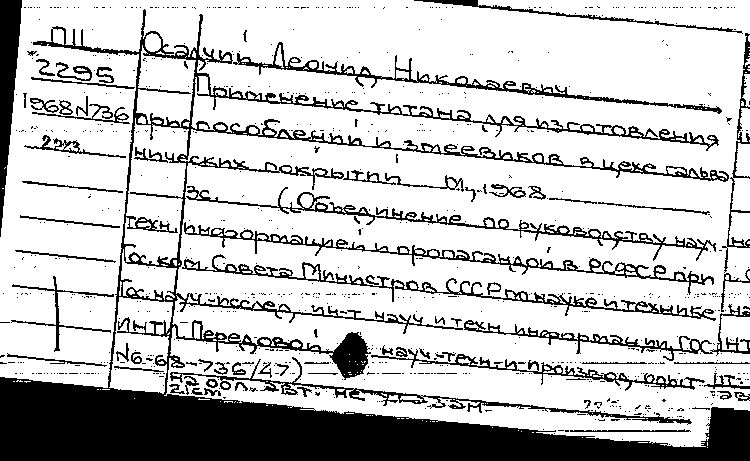 П11 Осадчий, Леонид Николаевич
2295 Применение титана для изготовления
1968 N736 приспособлений и змеевиков в цехе гальва-
нических покрытий М., 1968
3с. (Объединение по руководству науч.-
техн. информацией и пропагандой в РСФСР при
Гос. ком. Совета Министров СССР по науке и технике
Гос. науч.-исслед. ин-т науч. и техн. информации, ГОСИНТИ
ИНТИ. Передовой науч.-техн. и производ. опыт
N6-68-736/47)
На обл. авт. не указан.
2 ст.